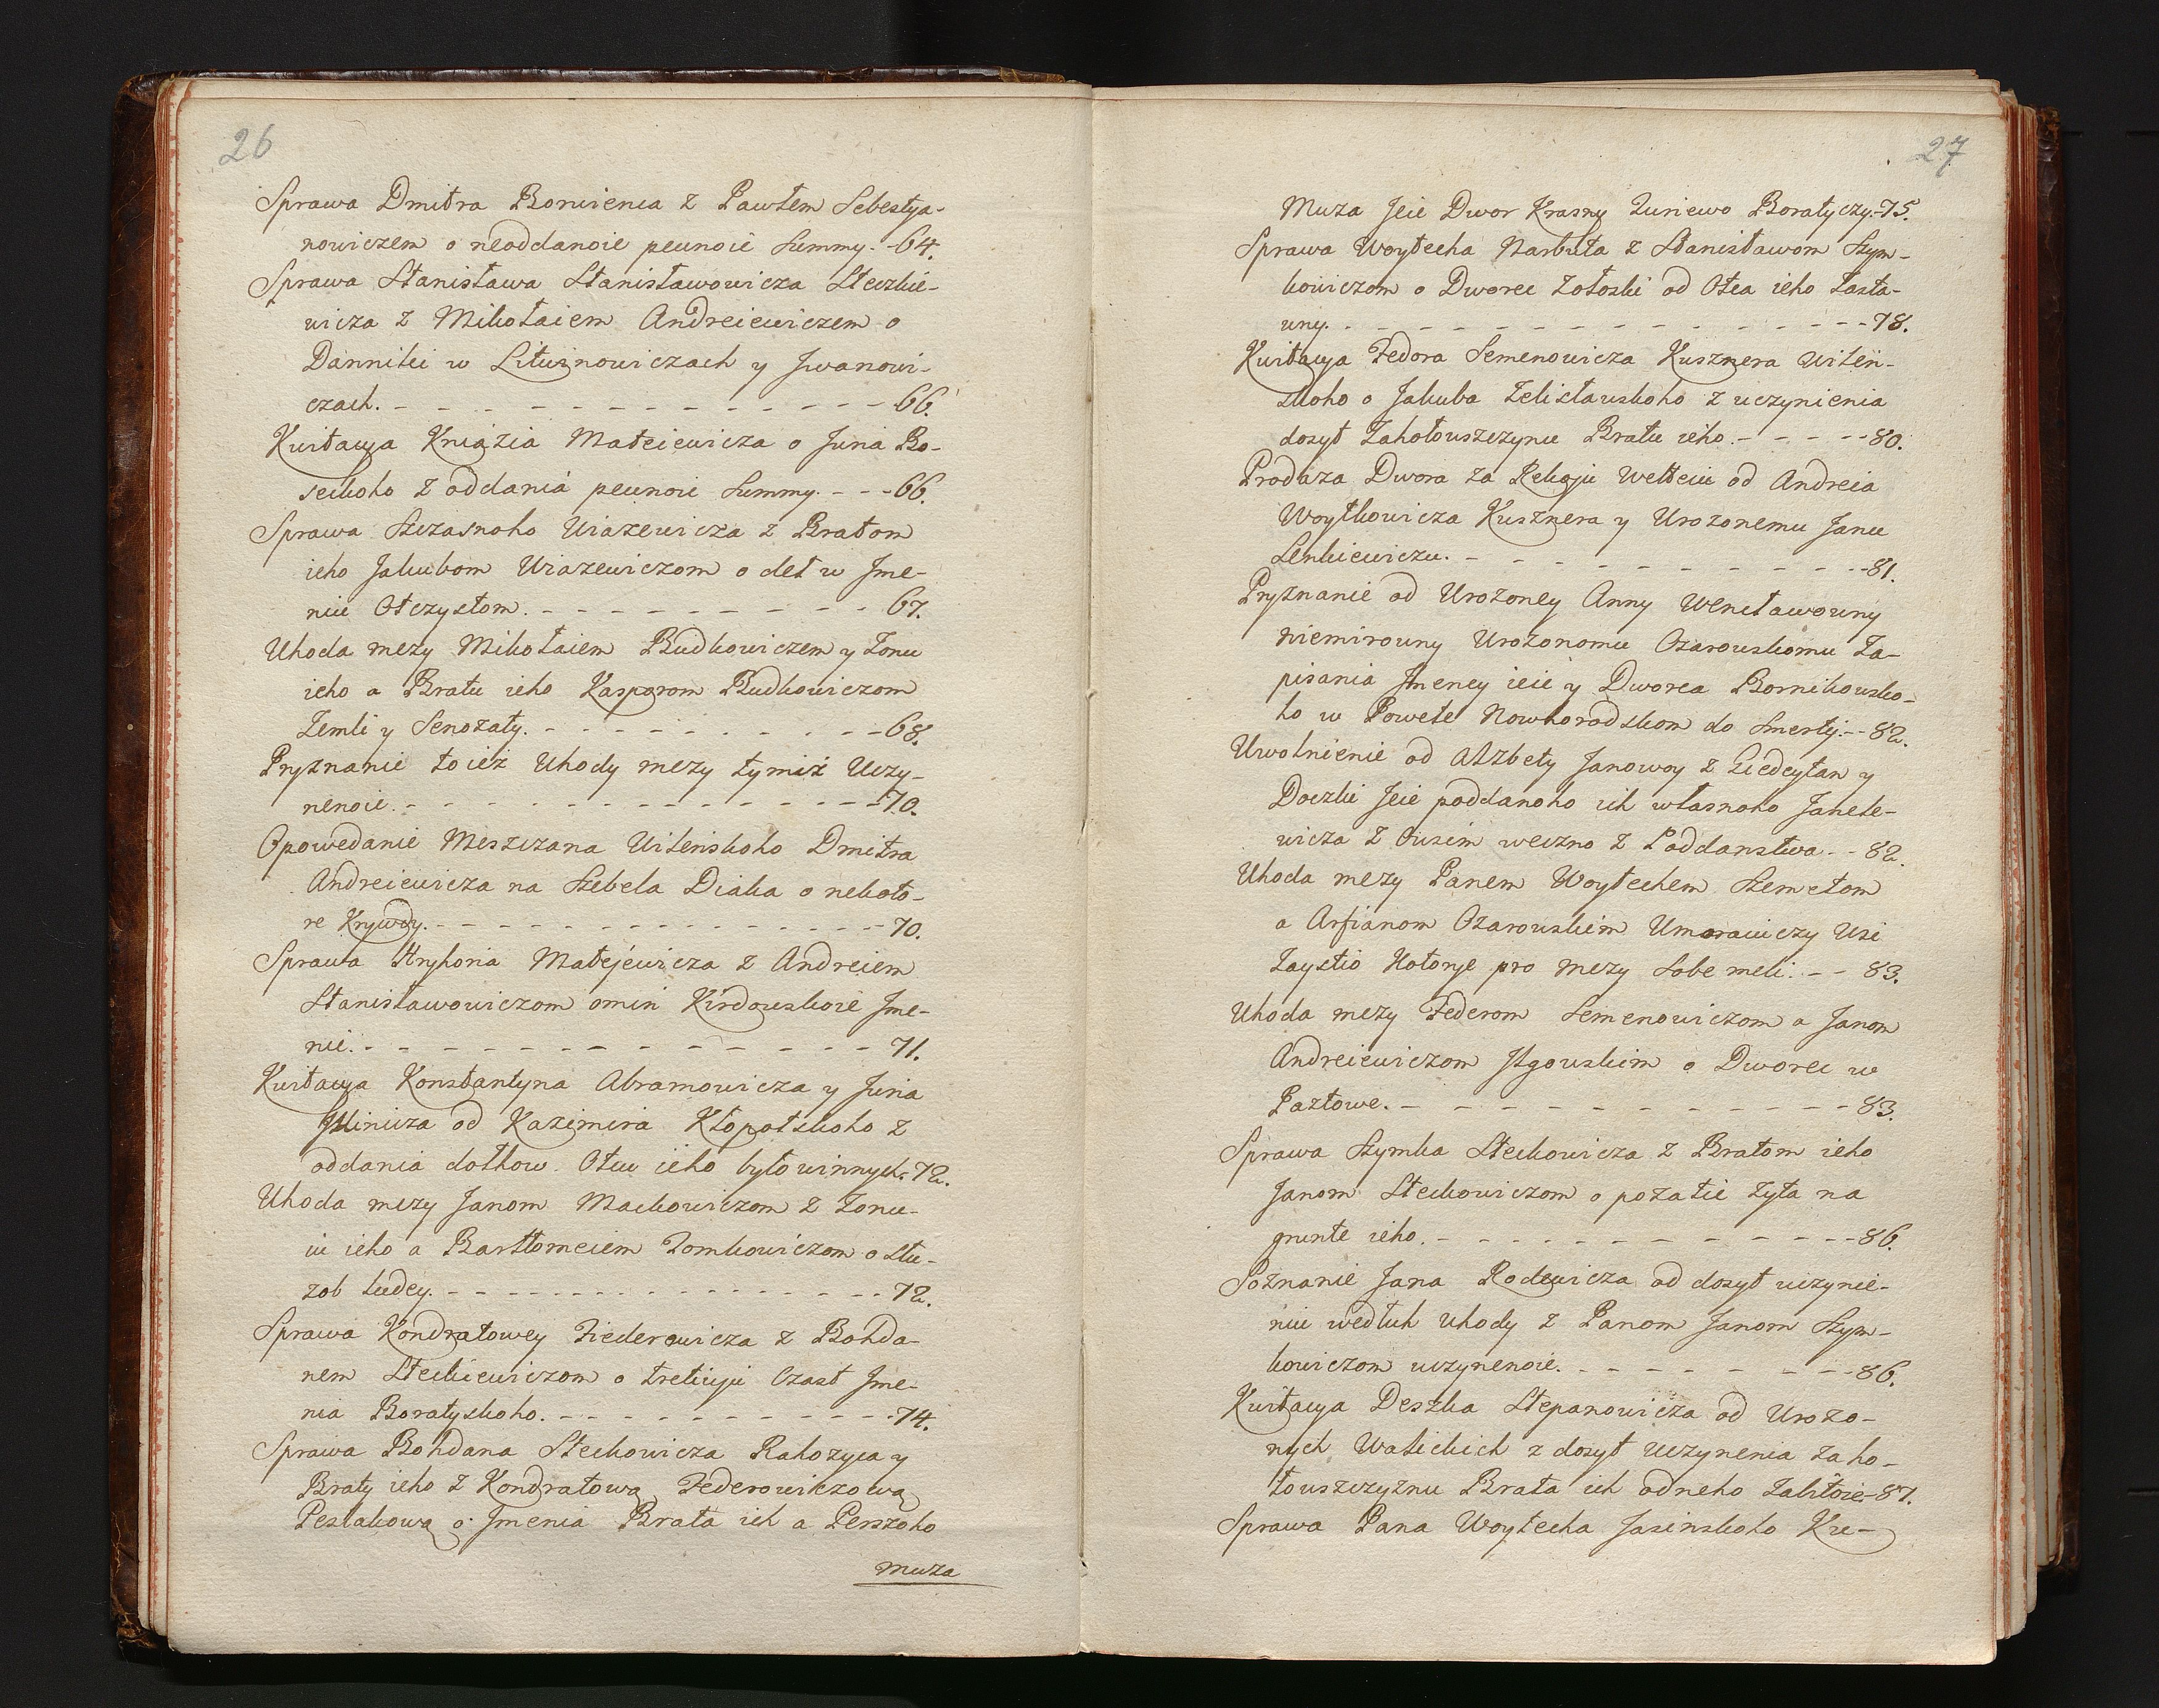 26
Sprawa Dmitra Borwienia z Pawłem Sebestya-
nowiczem o neoddanoie peunoie Summy. - 64.
Sprawa Stanisława Stanisławowicza Steczkie-
wicza z Mikołaiem Andreiewiczem o
Danniki w Litwinowiczach y Jwanowi-
czach. - - - - - - - - - - - - - 66.
Kwitacya Kniązia Mateiewicza o Juria Bo-
seckoho z oddania peunoie Summy. - - - 66.
Sprawa Szczasnoho Wiażewicza z Bratom
ieho Jakubom Wiazewiczom o det w Jme-
niu Otczystom. - - - - - - - - - - 67.
Uhoda mezy Mikołaiem Budkowiczem y Żonu
ieho a Bratu ieho Kasporom Budkowiczom
Zemli y Senożaty. - - - - - - - - - - 68.
Pryznanie toież Uhody mezy tymiż Uczy-
nenoie. - - - - - - - - - - - - - 70.
Opowedanie Meszczana Wileńskoho Dmitra
Andreiewicza na Szebela Diaka o nekoto-
re Krywdy. - - - - - - - - - - - - - 70.
Sprawa Hryhoria Matejewicza z Andreiem
Stanisławowiczom omin Kirdouskoie Jme-
nie. - - - - - - - - - - - - - 71.
Kwitacya Konstantyna Abramowicza y Juria
Jlinicza od Kazimira Kłopotskoho z
oddania dołhow. Otcu ieho było winnych. 72.
Uhoda mezy Janom Mackowiczom z Żonu-
iu ieho a Bartłomeiem Tomkowiczom o Słu-
zob ludey. - - - - - - - - - - - - - 72.
Sprawa Kondratowey Fiederowicza z Bohda-
nem Steckiewiczom o tretiuju Czast Jme-
nia Boratyskoho. - - - - - - - - - - 74.
Sprawa Bohdana Steckowicza Rahozyca y
Braty ieho z Kondratową Federowiczową
Pesłakową o Jmenia Brata ich a Perszoho
muża
27
Muza Jeie Dwor Krasny Zuriewo Boratyczy. - 75.
Sprawa Woytecha Narbuta z Stanisławom Szym-
kowiczom o Dworec Zołoski od Otca ieho Zasta-
wny. - - - - - - - - - - - - - 78.
Kwitacya Fedora Semenowicza Kusznera Wilen-
skoho o Jakuba Zelisławskoho z uczynienia
dosyt Zahołouszczynu Bratu ieho. - - - - - 80.
Prodaza Dwora za Rekoju Welleiu od Andreia
Woytkowicza Kusznera y Urozonemu Janu
Lenkiewiczu. - - - - - - - - - - - - 81.
Pryznanie od Urożoney Anny Wencławowny
niemirowny Urożonomu Ożarouskomu Za-
pisania Jmeney ieie y Dworca Bornikousko-
ho w Powete Nowhorodskom do Smerty. - - 82.
Uwolnienie od Alzbety Janowoy z Giedeytan y
Doczki Jeie poddanoho ich własnoho Janele-
wicza z Ousim weczno z Poddanstwa. - - 82.
Uhoda mezy Panem Woytechem Szemetom
a Arfianom Ożarouskim Umorawiczy Usi
Zaystio Kotorye pro mezy Sobe meli. - - 83.
Uhoda mezy Federom Semenowiczom a Janom
Andreiewiczom Jłgouskim o Dworec w
Pazłowe. - - - - - - - - - - - - 83.
Sprawa Szymka Steckowicza z Bratom ieho
Janom Steckowiczom o pożatie żyta na
grunte ieho. - - - - - - - - - - - - 86.
Soznanie Jana Rodewicza od dosyt uczynie-
niu wedłuh uhody z Panom Janom Szym-
kowiczom uczynenoie. - - - - - - - - 86.
Kwitacya Deszka Stepanowicza od Urożo-
nych Walickich z dosyt Uczynenia Zaho-
łouszczyznu Brata ich odneho Zabitoie. - 87.
Sprawa Pana Woytecha Jasinskoho Kre-